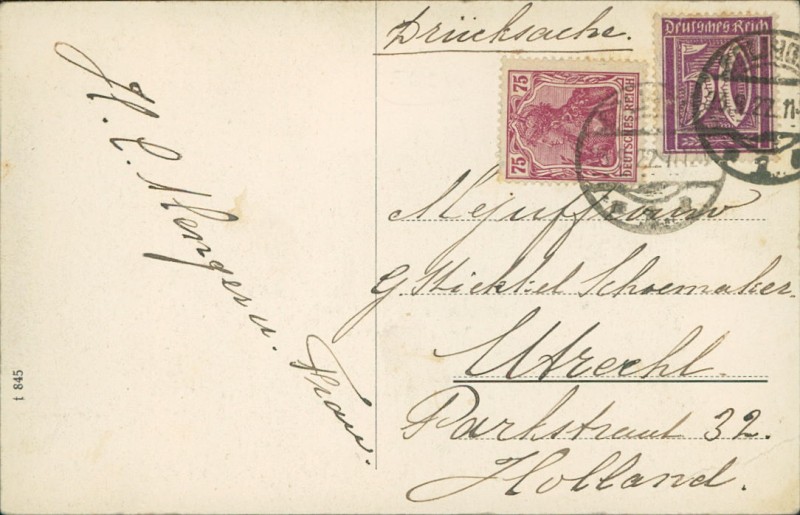 Drucksache.
Deutsches Reich
75
75
DEUTSCHES REICH
22.11-
22.11
Mejuffrouw
G. Stickel Schoemaker.
Utrecht.
Parkstraat 32.
Holland.
H. C. Menger u. Frau.
t 845